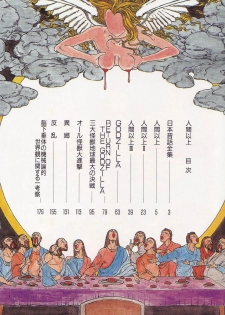 人間以上 目次
日本昔話全集 3
人間以上 5
人間以上Ⅱ 23
人間以上Ⅲ 39
GODZILLA 63
RETURN OF THE GODZILLA 79
三大怪獣地球最大の決戦 95
オール怪獣大進撃 113
異郷 131
反乱 155
脳下垂体の機械論的
世界観に関する一考察 179